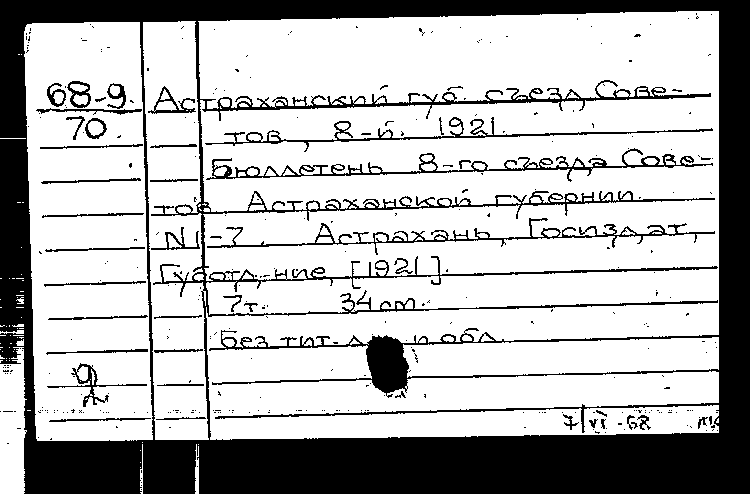 68-9 Астраханский губ. съезд Сове-
70. тов, 8-й. 1921.
Бюллетень 8-го съезда Сове-
тов Астраханской губернии.
N1-7. Астрахань, Госиздат,
Губотд-ние, [1921].
7т. 34 cm.
Без тит. л. и обл.
7/VI-68